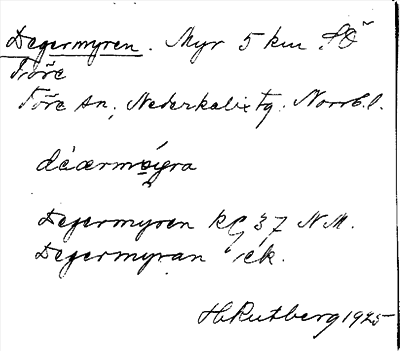 Degermyren. Myr 5 km SÖ
Töre
Töre sn, Nederkalix tg. Norrb. l.
Degermyren kG 37 N.M.
Degermyran ek.
H. Rutberg 1925